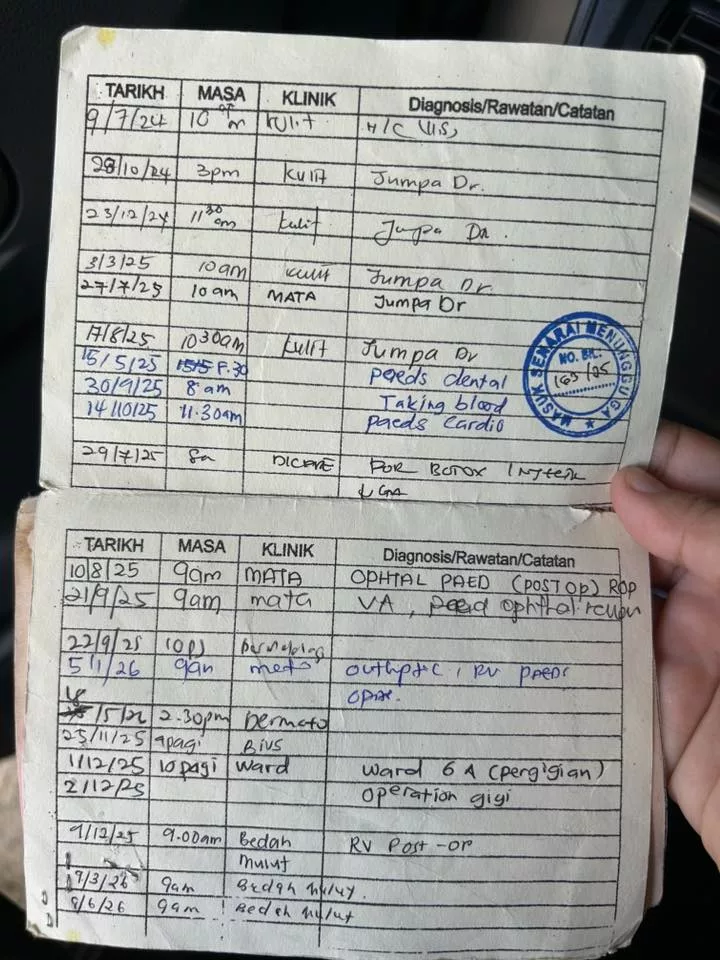 TARIKH MASA KLINIK Diagnosis/Rawatan/Catatan
9/7/24 10 am kulit H/C
28/10/24 3pm kulit Jumpa Dr.
23/12/24 11 30 am kulit Jumpa Dr.
3/3/25 10am kulit Jumpa Dr.
27/7/25 10 am MATA Jumpa Dr
17/8/25 10 30am kulit Jumpa Dr
15/5/25 8.30 paeds dental
30/9/25 8 am Taking blood
14/10/25 11.30am paeds cardio
29/7/25 8a FOR BOTOX
↓ GA
MASUK SENARAI MENUNGGU GA
NO. BIL.
163/25
TARIKH MASA KLINIK Diagnosis/Rawatan/Catatan
10/8/25 9am MATA OPHTAL PAED (POST OP) ROP
21/9/25 9am mata VA, paed ophthal review
22/9/25
5/1/26 9am mata RV PAEDS
/5/26 2.30pm Dermato
25/11/25 9pagi BIUS
1/12/25 10 pagi Ward Ward 6A (pergigian)
2/12/25 operation gigi
9/12/25 9.00am Bedah RV Post-op
mulut
9/3/26 9am Bedah mulut.
8/6/26 9am Bedah mulut